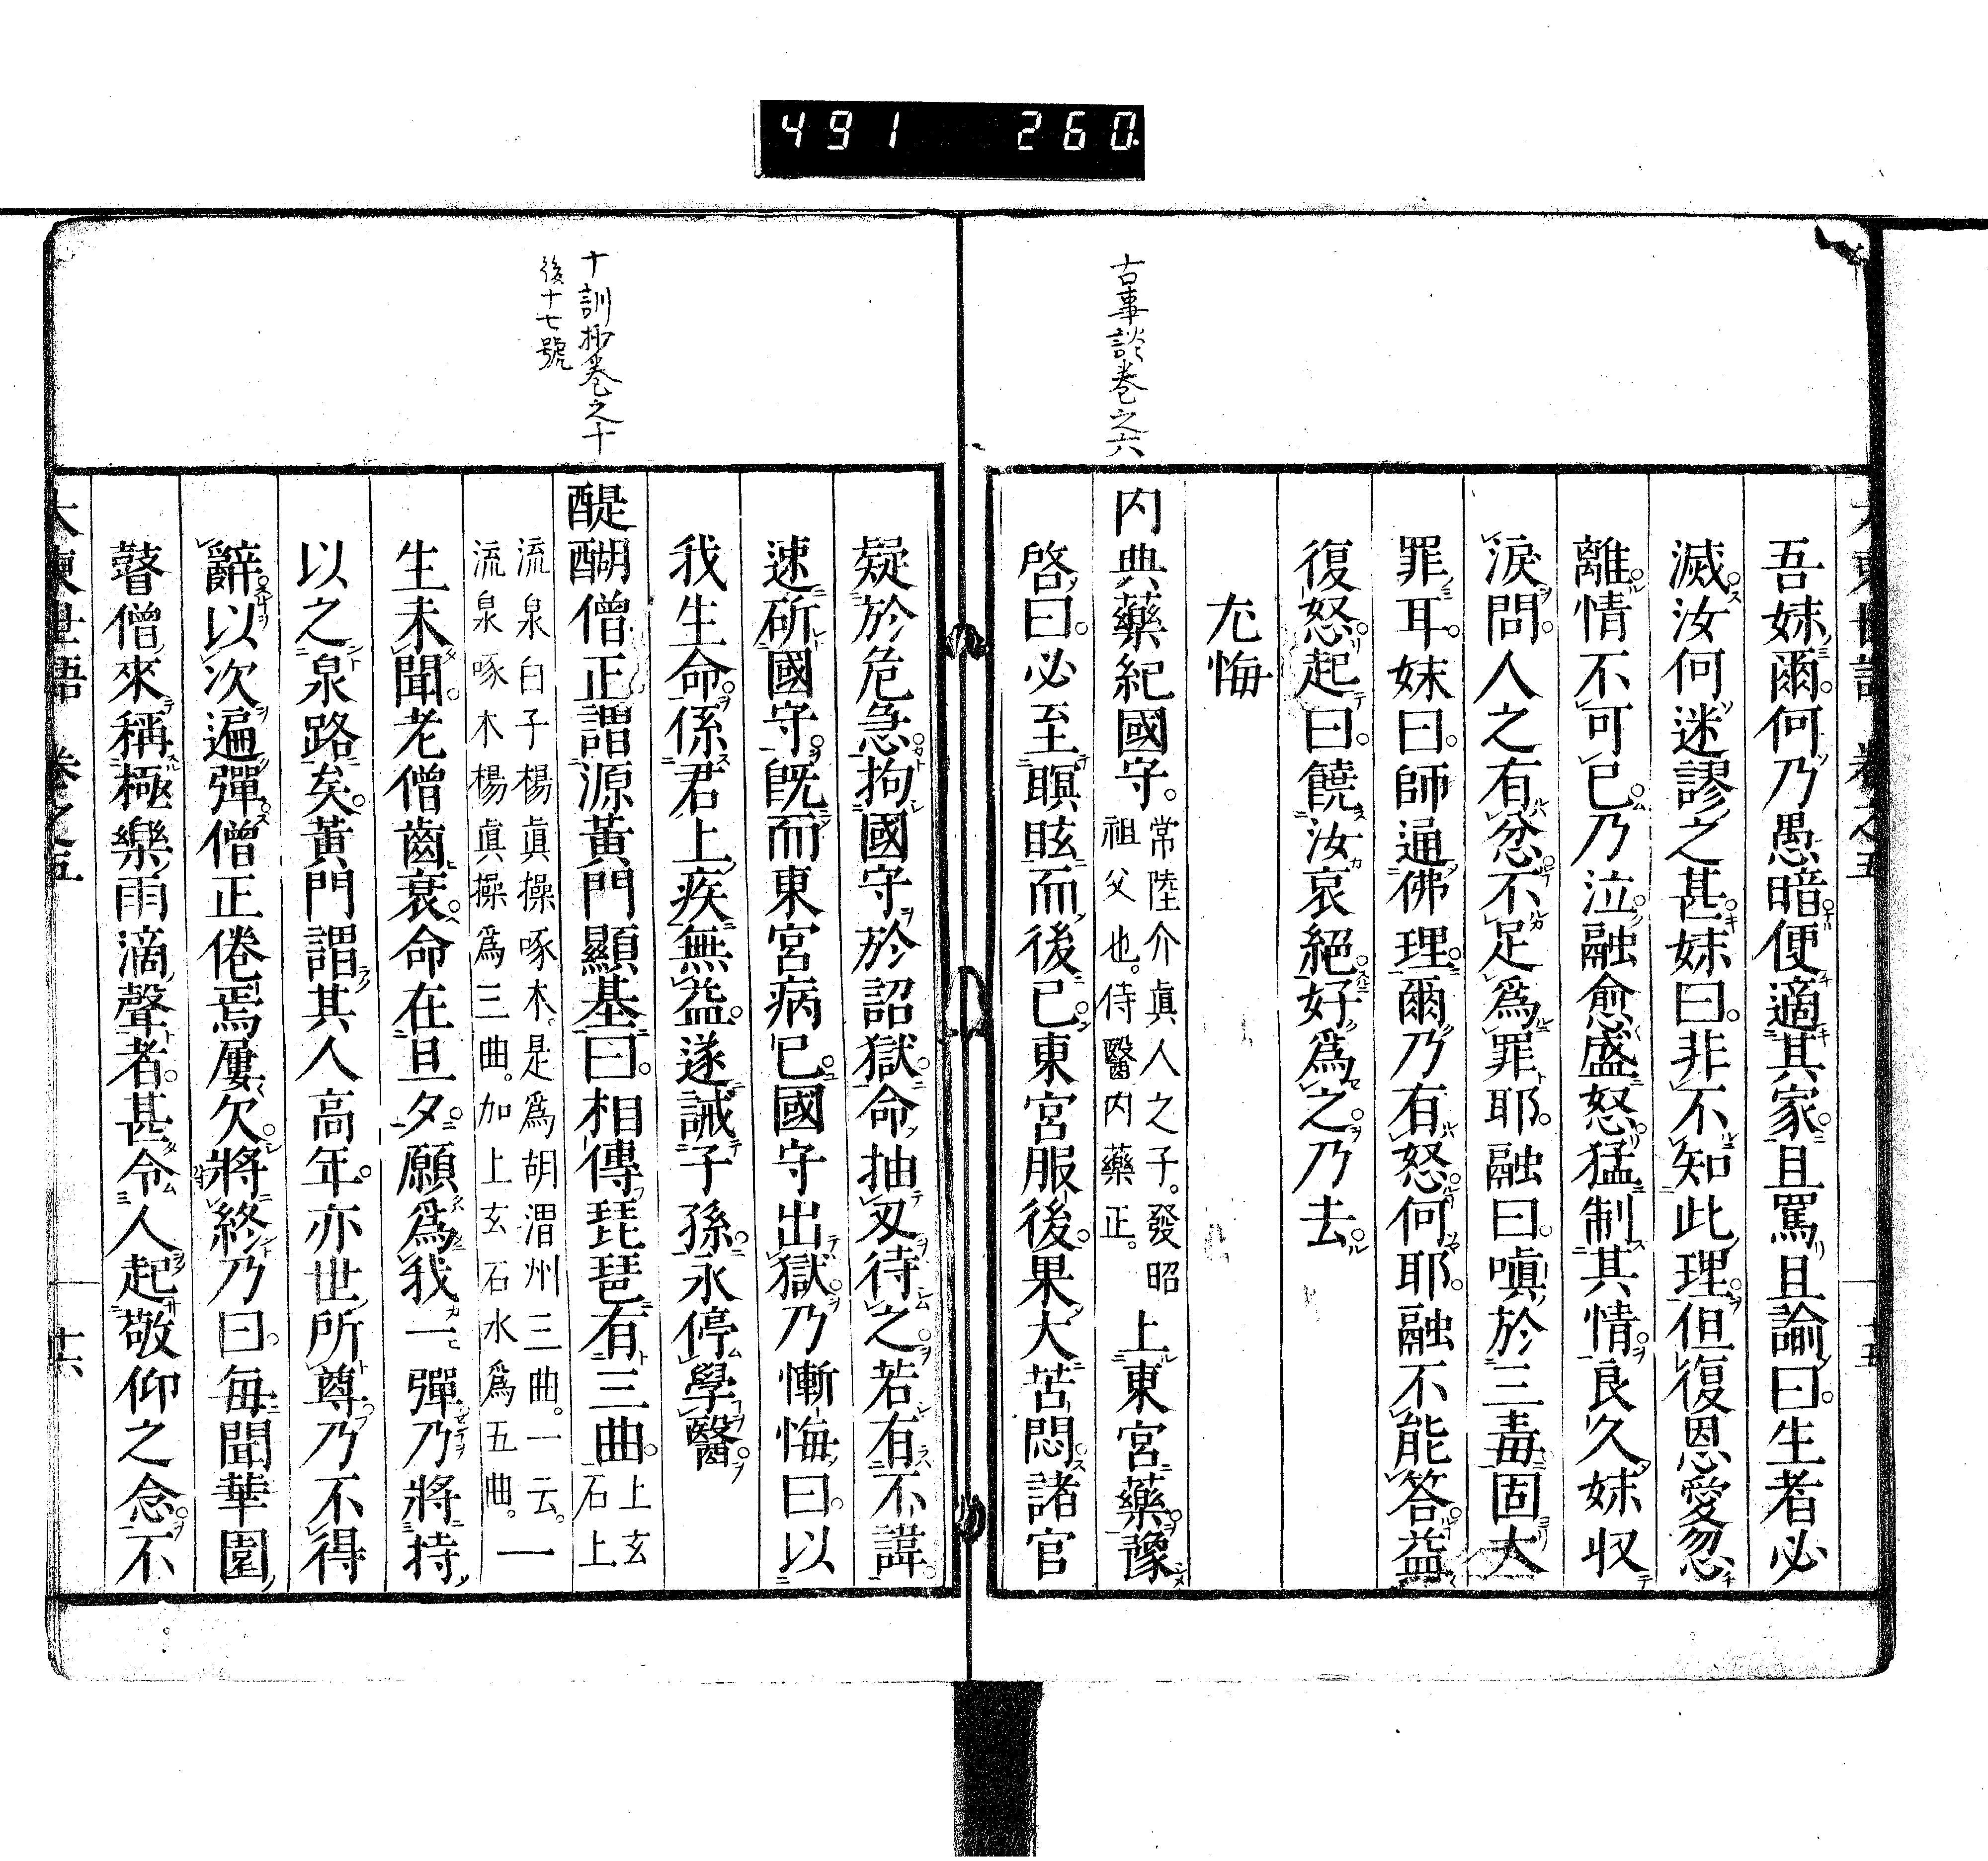 491 260
大東世語 卷之五 十五
吾妹爾何乃愚暗便適其家且罵且諭曰生者必
滅汝何迷謬之甚妹曰非不知此理但復恩愛忽
離情不可已乃泣融愈盛怒猛制其情良久妹収
淚問人之有忿不足爲罪耶融曰嗔於三毒固大
罪耳妹曰師通佛理爾乃有怒何耶融不能答益
復怒起曰饒汝哀絕好爲之乃去
尤悔
古事談卷之六
内典藥紀國守常陸介眞人之子。發昭祖父也。侍醫内藥正。上東宮藥豫
啓曰必至瞑眩而後已東宮服後果大苦悶諸官
疑於危急拘國守於詔獄命抽刄待之若有不諱
速斫國守既而東宮病已國守出獄乃慚悔曰以
我生命係君上疾無益遂誡子孫永停學醫
十訓抄卷之十
後十七號
醍醐僧正謂源黃門顯基曰相傳琵琶有三曲上玄石上
流泉白子楊眞操啄木。是爲胡渭州三曲。一云。
流泉啄木楊眞操爲三曲。加上玄石水爲五曲。一
生未聞老僧齒衰命在旦夕願爲我一彈乃將持
以之泉路矣黃門謂其人高年亦世所尊乃不得
辭以次遍彈僧正倦焉屢欠將終乃曰每聞華園
瞽僧來稱極樂雨滴聲者甚令人起敬仰之念不
大東世語 卷之五 十六